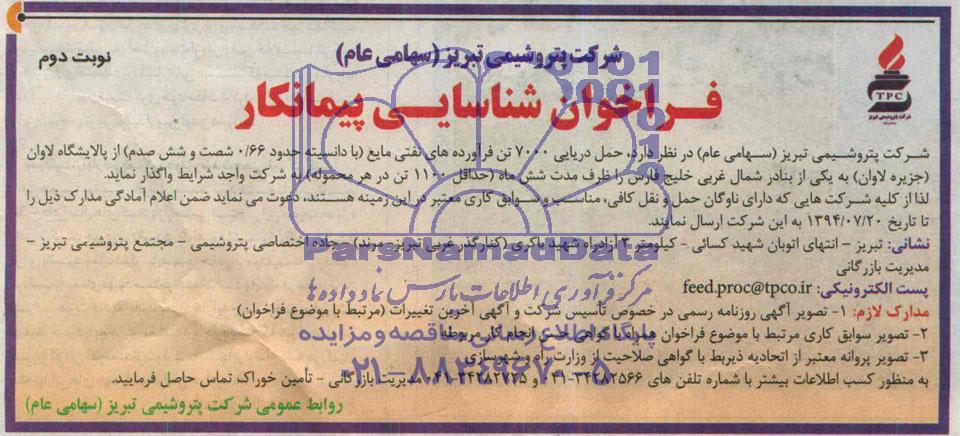 شرکت پتروشیمی تبریز (سهامی عام)
نوبت دوم
فراخوان شناسایی پیمانکار
TPC
شرکت پتروشیمی تبریز
شرکت پتروشیمی تبریز (سهامی عام) در نظر دارد، حمل دریایی ۷۰۰۰ تن فرآورده های نفتی مایع (با دانسیته حدود ۰/۶۶ شصت و شش صدم) از پالایشگاه لاوان
(جزیره لاوان) به یکی از بنادر شمال غربی خلیج فارس را ظرف مدت شش ماه (حداقل ۱۱۰۰ تن در هر محموله) به شرکت واجد شرایط واگذار نماید.
لذا از کلیه شرکت هایی که دارای ناوگان حمل و نقل کافی، مناسب و سوابق کاری معتبر در این زمینه هستند، دعوت می نماید ضمن اعلام آمادگی مدارک ذیل را
تا تاریخ ۱۳۹۴/۰۷/۲۰ به این شرکت ارسال نمایند.
نشانی: تبریز - انتهای اتوبان شهید کسائی - کیلومتر ۳ آزادراه شهید باکری (کنارگذر غربی تبریز - مرند) - جاده اختصاصی پتروشیمی - مجتمع پتروشیمی تبریز -
مدیریت بازرگانی
پست الکترونیکی: feed.proc@tpco.ir
مدارک لازم: ۱- تصویر آگهی روزنامه رسمی در خصوص تأسیس شرکت و آگهی آخرین تغییرات (مرتبط با موضوع فراخوان)
۲- تصویر سوابق کاری مرتبط با موضوع فراخوان همراه با گواهی حسن انجام کار مربوطه
۳- تصویر پروانه معتبر از اتحادیه ذیربط یا گواهی صلاحیت از وزارت راه و شهرسازی
به منظور کسب اطلاعات بیشتر با شماره تلفن های ۳۴۲۸۲۵۶۶-۰۴۱ و ۳۴۲۸۲۷۲۵-۰۴۱ مدیریت بازرگانی - تأمین خوراک تماس حاصل فرمایید.
روابط عمومی شرکت پتروشیمی تبریز (سهامی عام)
ParsNamadData
مرکز فرآوری اطلاعات پارس نماد داده ها
پایگاه اطلاع رسانی مناقصه و مزایده
۰۲۱-۸۸۳۴۹۶۷۰-۵